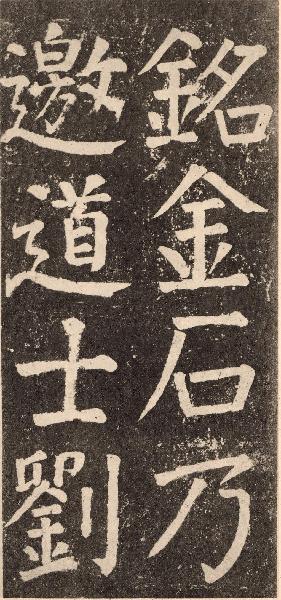 銘金石乃
邀道士劉